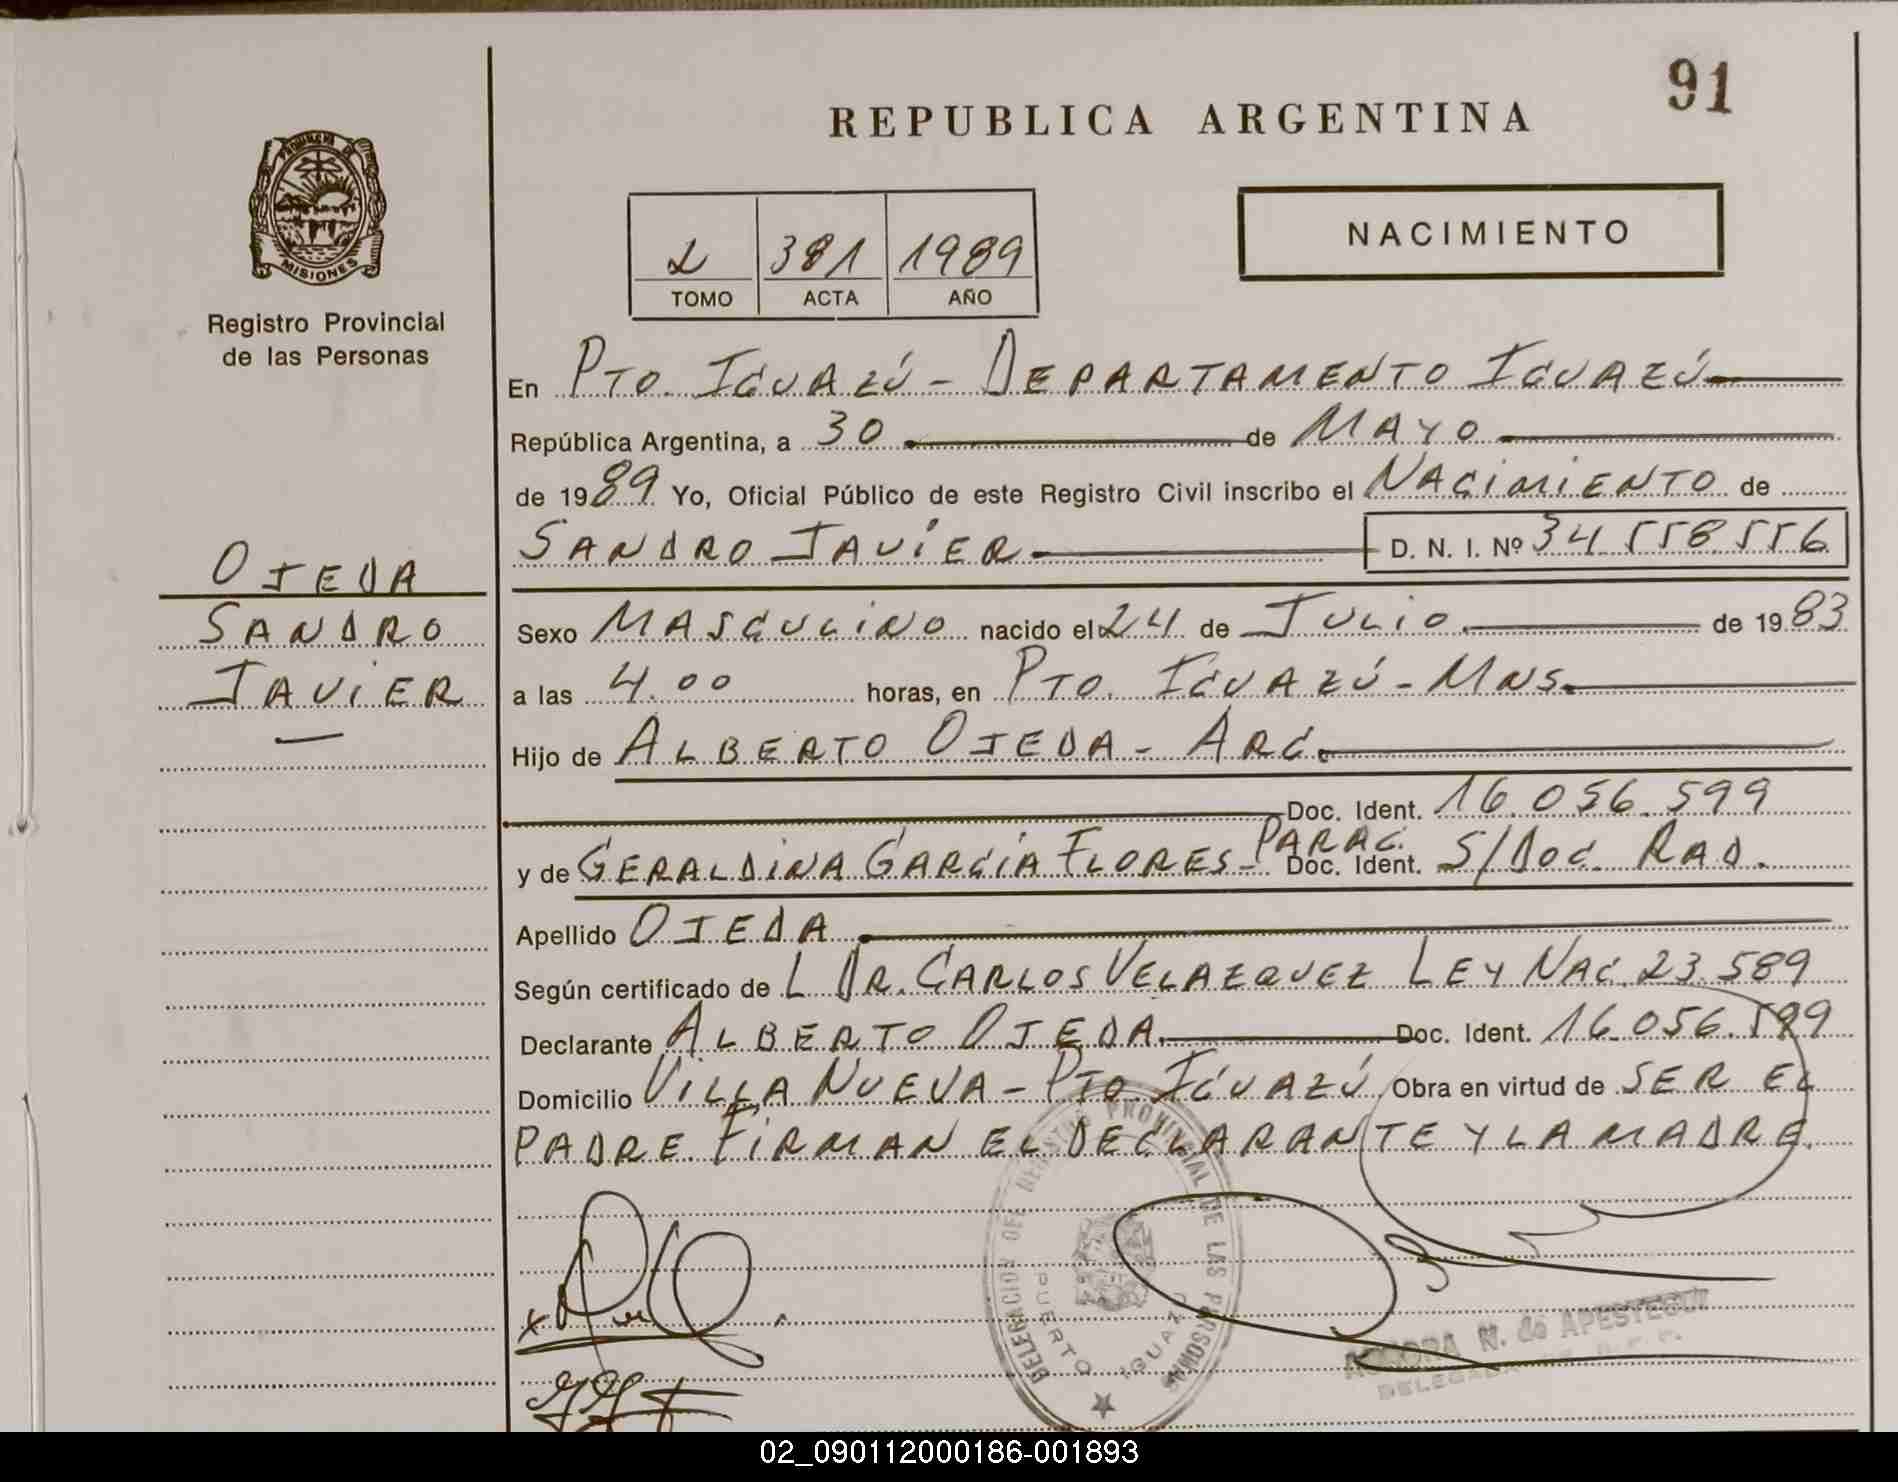 91
REPUBLICA ARGENTINA
PROVINCIA DE
MISIONES
Registro Provincial
de las Personas
2 381 1989
TOMO ACTA AÑO
NACIMIENTO
En Pto. Iguazú - Departamento Iguazú
República Argentina, a 30 de Mayo
de 1989 Yo, Oficial Público de este Registro Civil inscribo el Nacimiento de
Sandro Javier D. N. I. Nº 34.558.556
Ojeda
Sandro
Javier
Sexo Masculino nacido el 24 de Julio de 1983
a las 4.00 horas, en Pto. Iguazú - Mns.
Hijo de Alberto Ojeda - Arg.
Doc. Ident. 16.056.599
y de Geraldina García Flores - Parag. Doc. Ident. S/Doc. Rad.
Apellido Ojeda
Según certificado de L Dr. Carlos Velazquez Ley Nac. 23.589
Declarante Alberto Ojeda Doc. Ident. 16.056.599
Domicilio Villa Nueva - Pto. Iguazú Obra en virtud de ser el
padre. Firman el declarante y la madre.
DELEGACION DEL REGISTRO PROVINCIAL DE LAS PERSONAS
PUERTO IGUAZU
N. de APESTEGUI
02_090112000186-001893